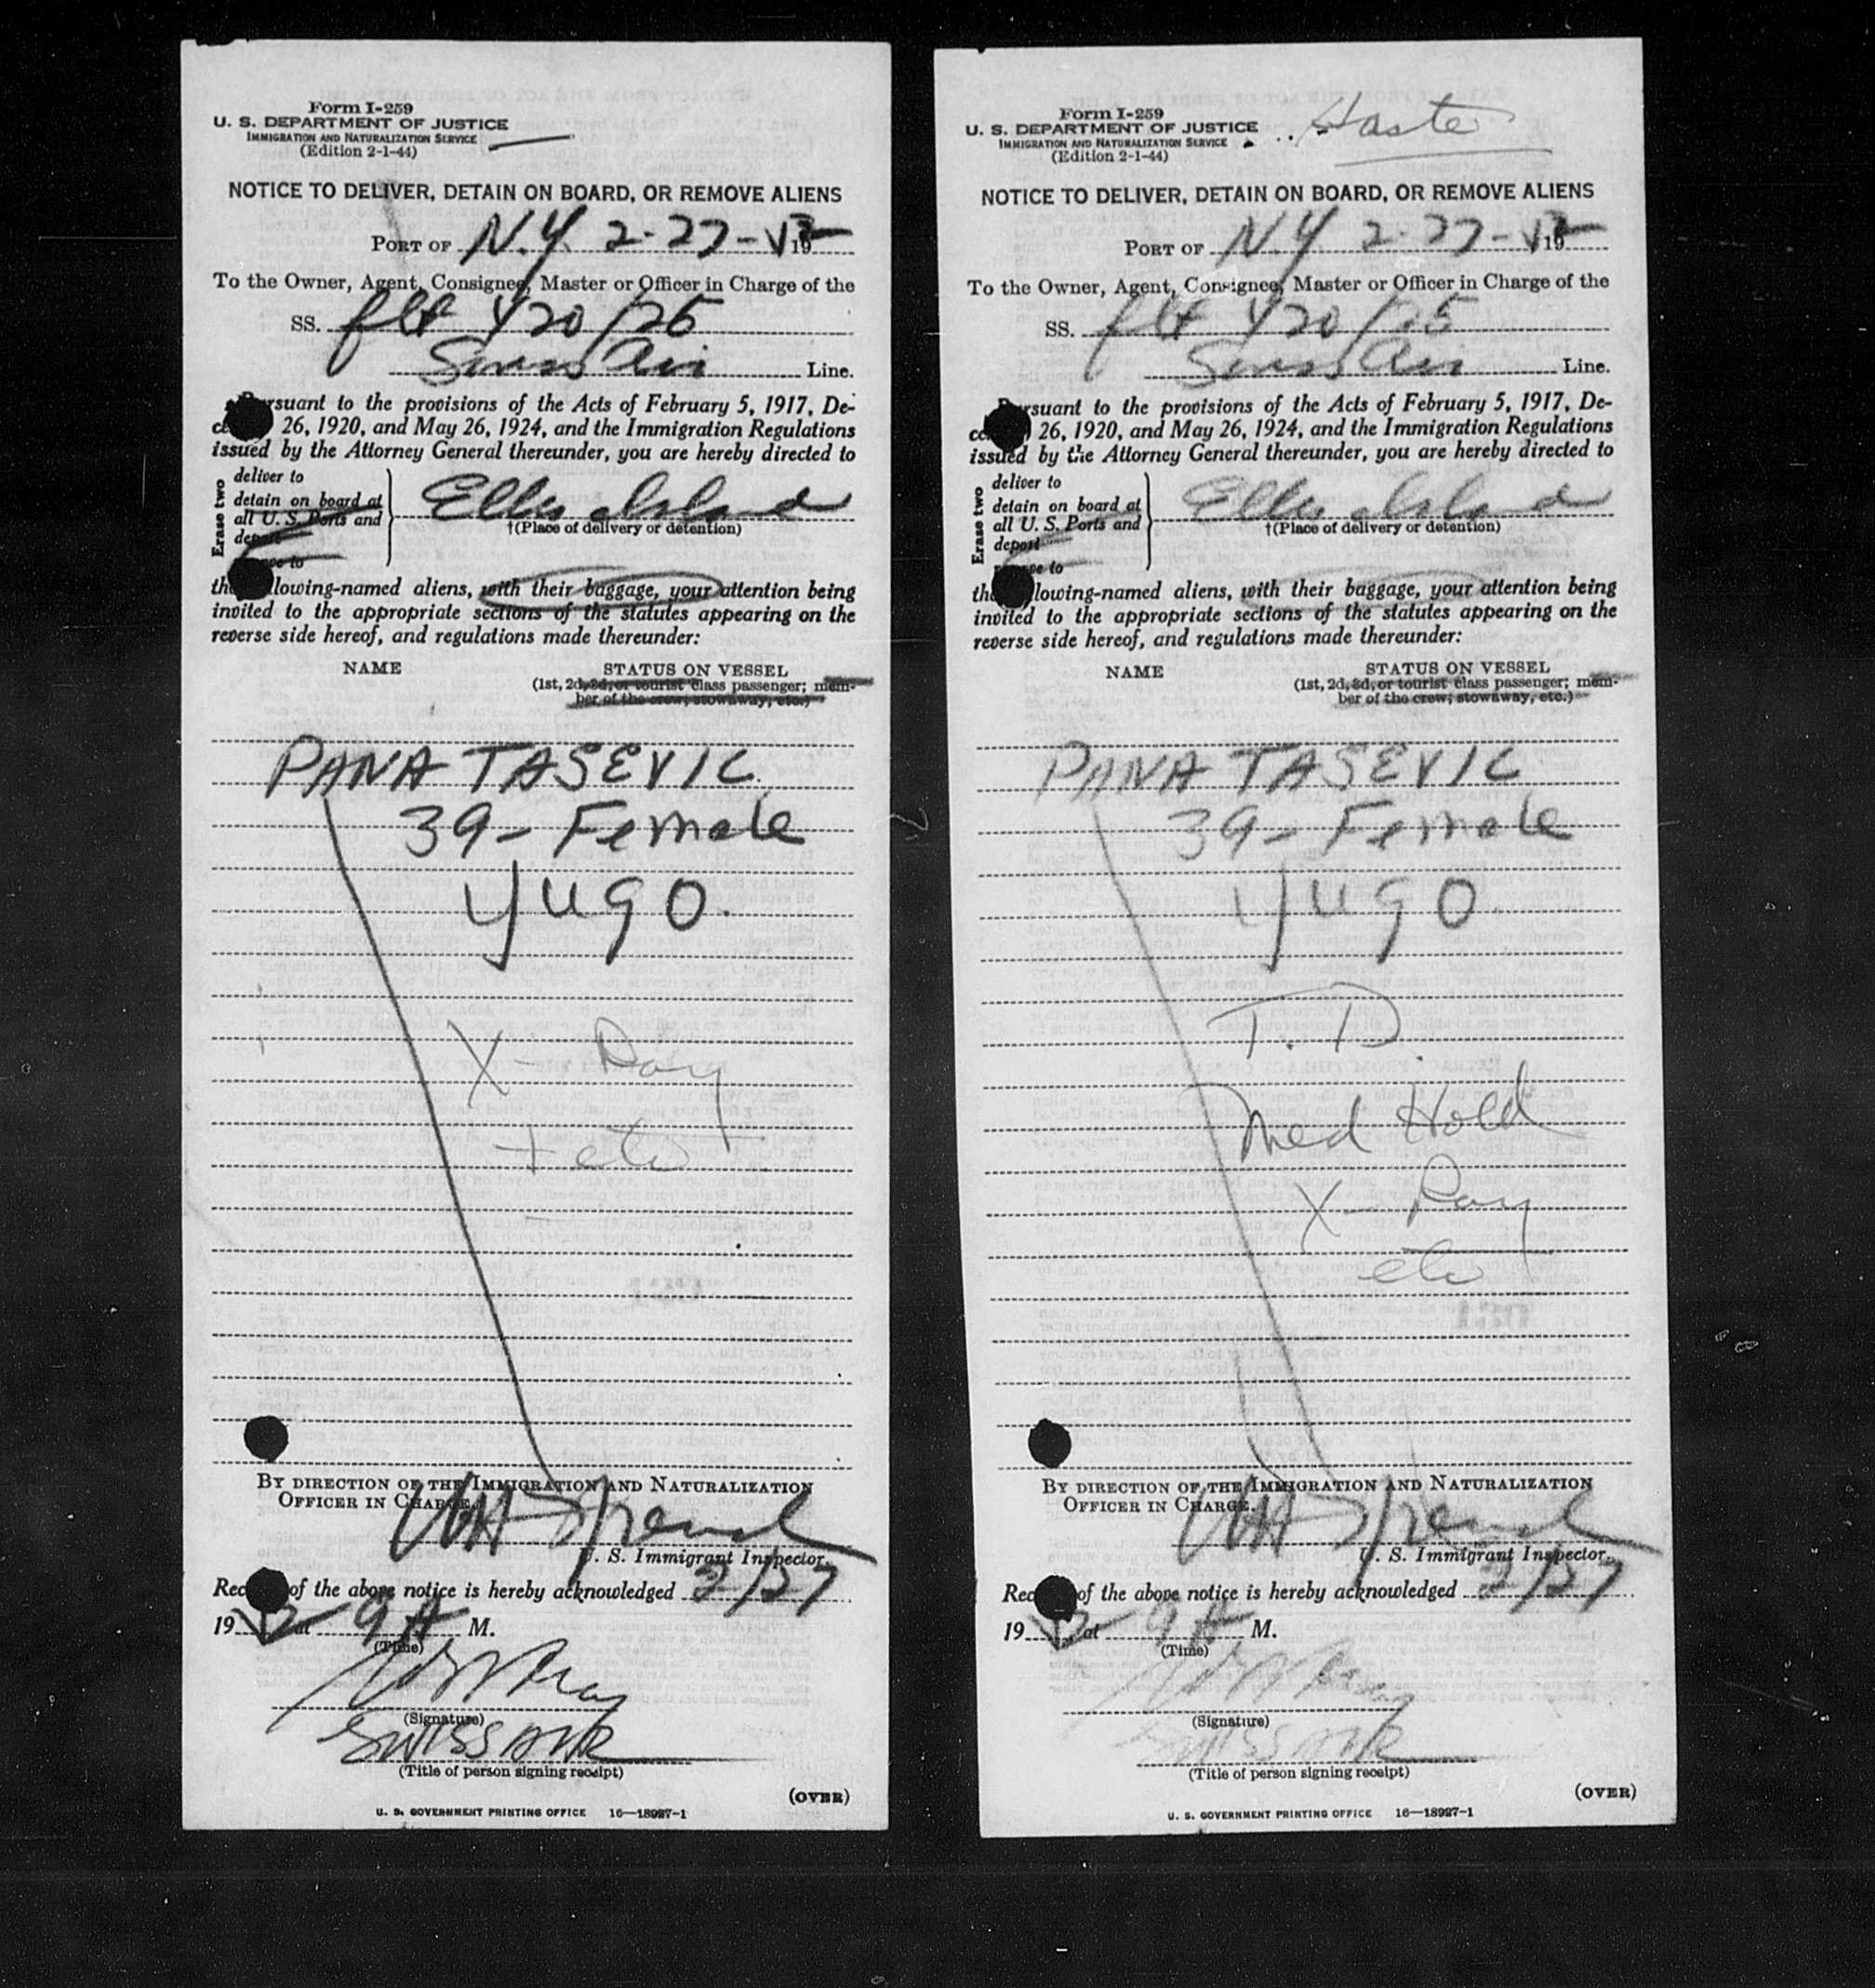 Form I-259
U. S. DEPARTMENT OF JUSTICE
IMMIGRATION AND NATURALIZATION SERVICE
(Edition 2-1-44)
NOTICE TO DELIVER, DETAIN ON BOARD, OR REMOVE ALIENS
PORT OF N.Y. 2-27-52 19
To the Owner, Agent, Consignee, Master or Officer in Charge of the
SS. flt 420/26
Swiss Air Line.
Pursuant to the provisions of the Acts of February 5, 1917, De-
26, 1920, and May 26, 1924, and the Immigration Regulations
issued by the Attorney General thereunder, you are hereby directed to
Erase two
deliver to
detain on board at
all U. S. Ports and
deport
Ellis Island
†(Place of delivery or detention)
to
the following-named aliens, with their baggage, your attention being
invited to the appropriate sections of the statutes appearing on the
reverse side hereof, and regulations made thereunder:
NAME STATUS ON VESSEL
(1st, 2d, 3d, or tourist class passenger; mem-
ber of the crew; stowaway, etc.)
PANA TASEVIC
39 - Female
YUGO.
X-Ray
+ etc
BY DIRECTION OF THE IMMIGRATION AND NATURALIZATION
OFFICER IN CHARGE.
U. S. Immigrant Inspector.
Rec of the above notice is hereby acknowledged 2/27
19 52 at 9 A M.
(Time)
(Signature)
SWISSAIR
(Title of person signing receipt)
(OVER)
U. S. GOVERNMENT PRINTING OFFICE 16—18927-1
Form I-259
U. S. DEPARTMENT OF JUSTICE
IMMIGRATION AND NATURALIZATION SERVICE
(Edition 2-1-44)
Haste
NOTICE TO DELIVER, DETAIN ON BOARD, OR REMOVE ALIENS
PORT OF N.Y. 2-27-52 19
To the Owner, Agent, Consignee, Master or Officer in Charge of the
SS. flt 420/
Swiss Air Line.
Pursuant to the provisions of the Acts of February 5, 1917, De-
26, 1920, and May 26, 1924, and the Immigration Regulations
issued by the Attorney General thereunder, you are hereby directed to
Erase two
deliver to
detain on board at
all U. S. Ports and
deport
Ellis Island
†(Place of delivery or detention)
to
the following-named aliens, with their baggage, your attention being
invited to the appropriate sections of the statutes appearing on the
reverse side hereof, and regulations made thereunder:
NAME STATUS ON VESSEL
(1st, 2d, 3d, or tourist class passenger; mem-
ber of the crew; stowaway, etc.)
PANA TASEVIC
39 - Female
YUGO.
T. D.
Med Hold
X-Ray
etc
BY DIRECTION OF THE IMMIGRATION AND NATURALIZATION
OFFICER IN CHARGE.
U. S. Immigrant Inspector.
Rec of the above notice is hereby acknowledged 2/27
19 52 at 9 A M.
(Time)
(Signature)
SWISSAIR
(Title of person signing receipt)
(OVER)
U. S. GOVERNMENT PRINTING OFFICE 16—18927-1